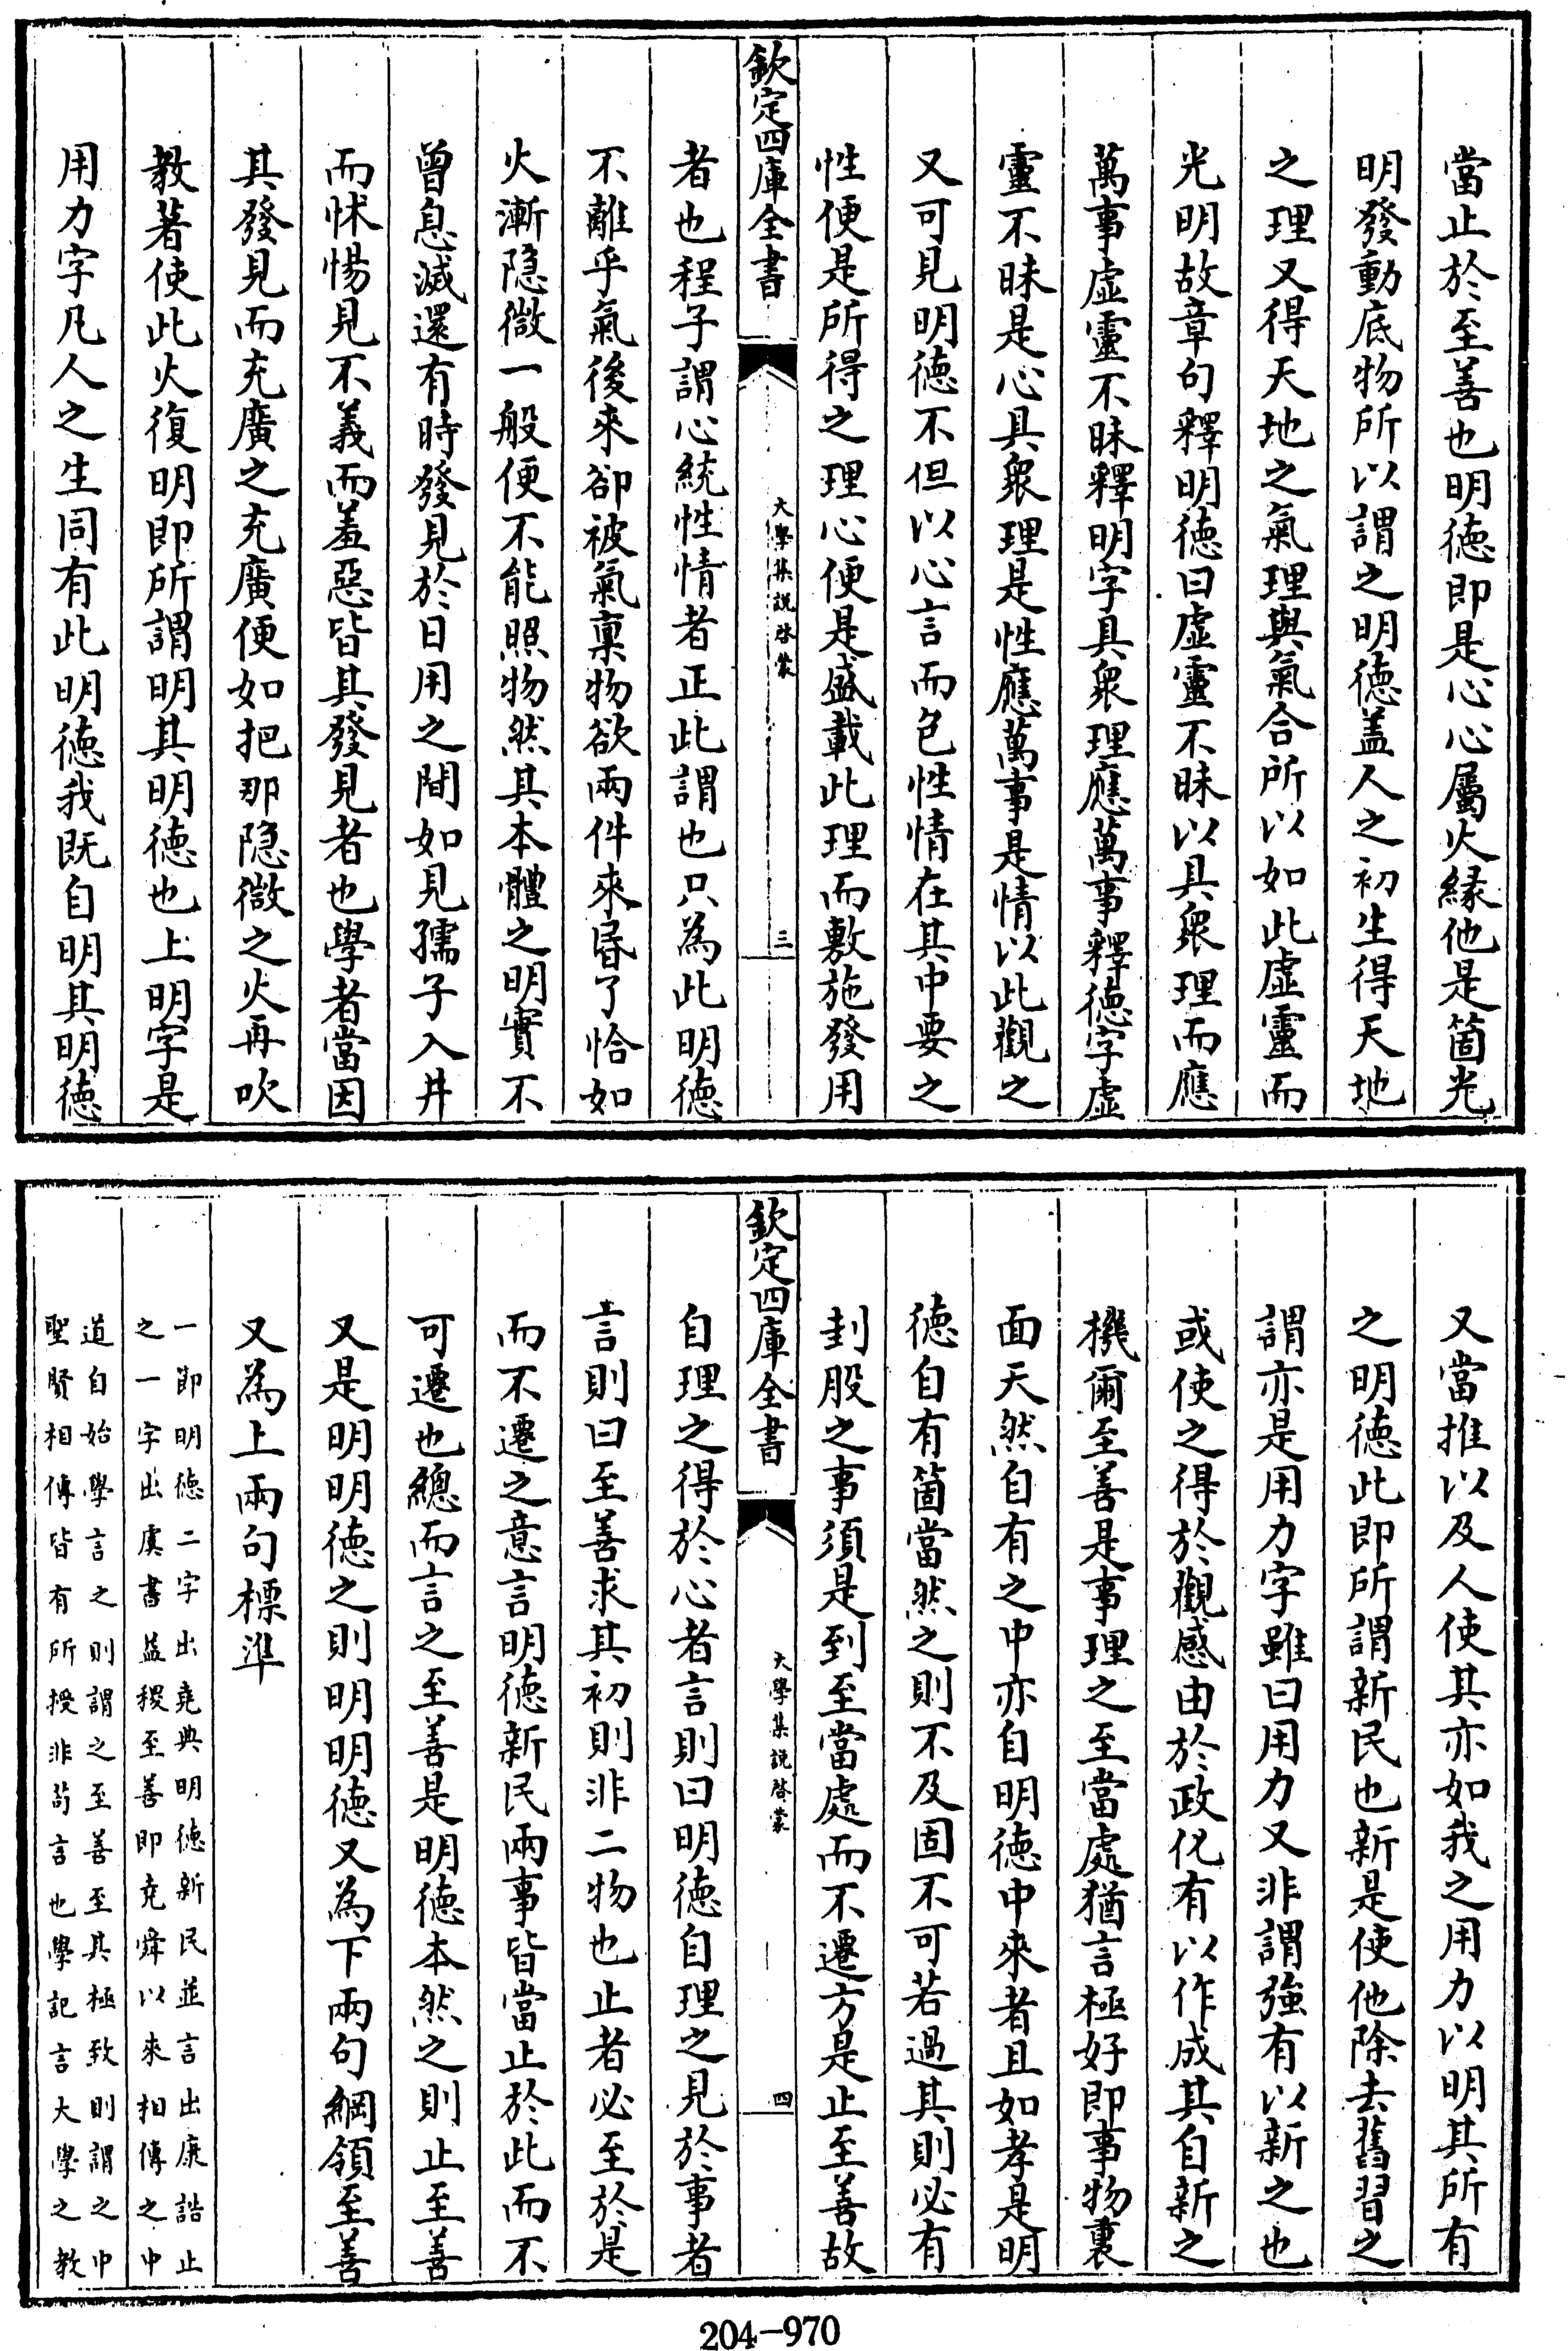 當止於至善也明徳即是心心屬火緣他是箇光
明發動底物所以謂之明徳盖人之初生得天地
之理又得天地之氣理與氣合所以如此虛靈而
光明故章句釋明徳曰虛靈不昧以具衆理而應
萬事虛靈不昧釋明字具衆理應萬事釋徳字虛
靈不昧是心具衆理是性應萬事是情以此觀之
又可見明徳不但以心言而包性情在其中要之
性便是所得之理心便是盛載此理而敷施發用
欽定四庫全書
大學集說啓蒙
三
者也程子謂心統性情者正此謂也只為此明徳
不離乎氣後來卻被氣稟物欲兩件來昏了恰如
火漸隐微一般便不能照物然其本體之明實不
曾息滅還有時發見於日用之間如見孺子入井
而怵惕見不義而羞惡皆其發見者也學者當因
其發見而充廣之充廣便如把那隐微之火再吹
教著使此火復明即所謂明其明徳也上明字是
用力字凡人之生同有此明徳我既自明其明徳
又當推以及人使其亦如我之用力以明其所有
之明徳此即所謂新民也新是使他除去舊習之
謂亦是用力字雖曰用力又非謂強有以新之也
或使之得於觀感由於政化有以作成其自新之
機爾至善是事理之至當處猶言極好即事物裏
面天然自有之中亦自明徳中來者且如孝是明
徳自有箇當然之則不及固不可若過其則必有
刲股之事須是到至當處而不遷方是止至善故
欽定四庫全書
大學集說啓蒙
四
自理之得於心者言則曰明徳自理之見於事者
言則曰至善求其初則非二物也止者必至於是
而不遷之意言明徳新民兩事皆當止於此而不
可遷也總而言之至善是明徳本然之則止至善
又是明明徳之則明明徳又為下兩句綱領至善
又為上兩句標準
一即明徳二字出堯典明徳新民並言出康誥止
之一字出虞書益稷至善即堯舜以來相傳之中
道自始學言之則謂之至善至其極致則謂之中
聖賢相傳皆有所授非茍言也學記言大學之教
204-970